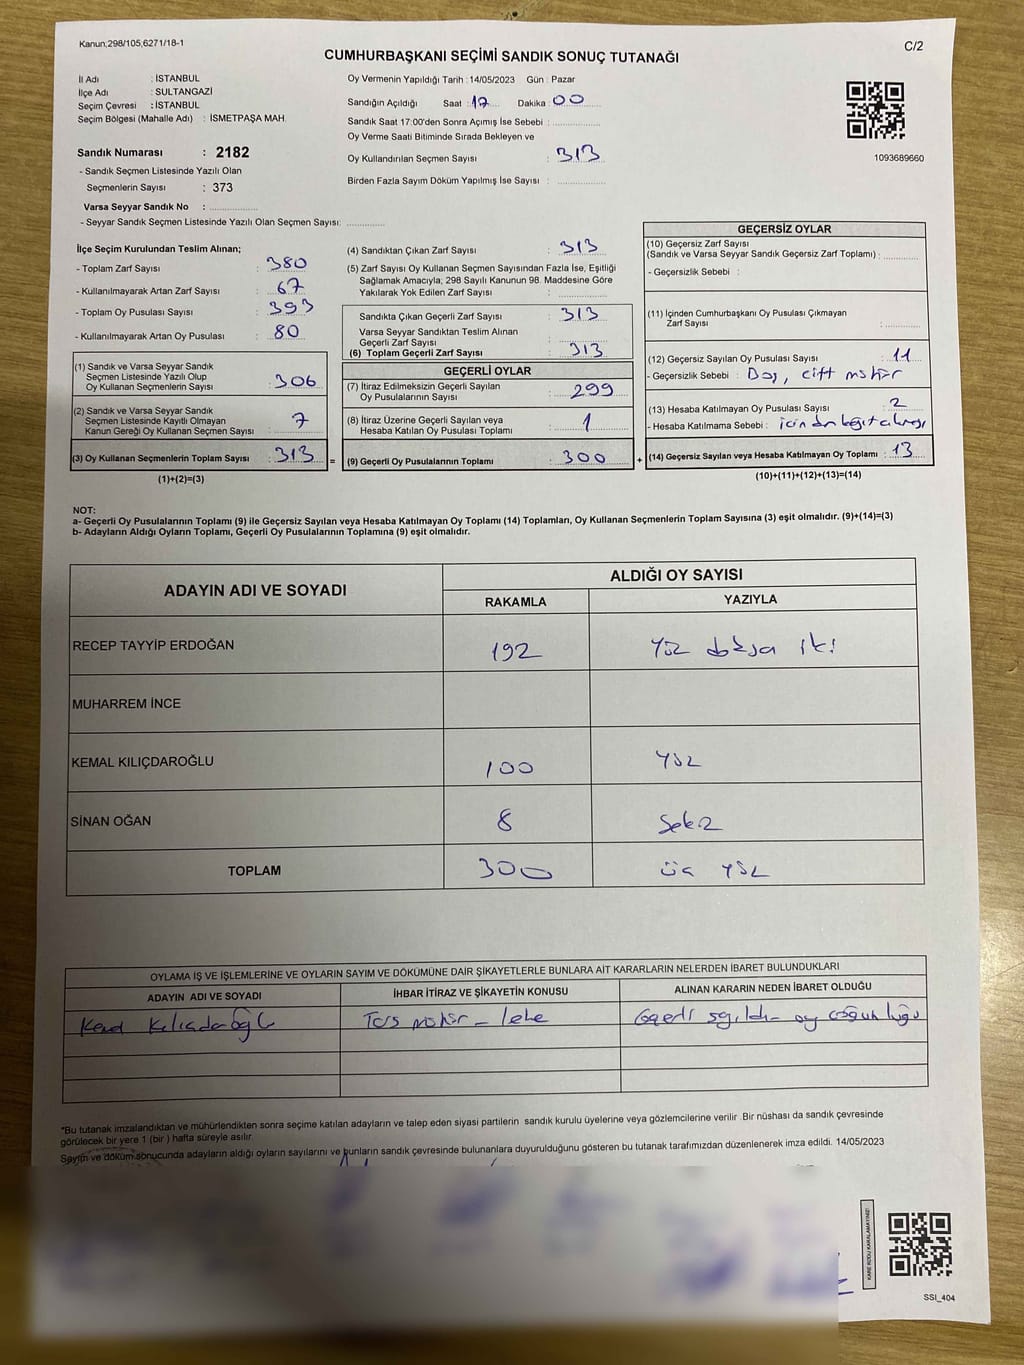 Kanun;298/105,6271/18-1
C/2
CUMHURBAŞKANI SEÇİMİ SANDIK SONUÇ TUTANAĞI
İl Adı : İSTANBUL
İlçe Adı : SULTANGAZİ
Seçim Çevresi : İSTANBUL
Seçim Bölgesi (Mahalle Adı) : İSMETPAŞA MAH.
Sandık Numarası : 2182
- Sandık Seçmen Listesinde Yazılı Olan
Seçmenlerin Sayısı : 373
Varsa Seyyar Sandık No :
- Seyyar Sandık Seçmen Listesinde Yazılı Olan Seçmen Sayısı:
Oy Vermenin Yapıldığı Tarih : 14/05/2023 Gün : Pazar
Sandığın Açıldığı Saat : 17 Dakika : 00
Sandık Saat 17:00'den Sonra Açımış İse Sebebi :
Oy Verme Saati Bitiminde Sırada Bekleyen ve
Oy Kullandırılan Seçmen Sayısı : 313
Birden Fazla Sayım Döküm Yapılmış İse Sayısı :
1093689660
İlçe Seçim Kurulundan Teslim Alınan;
- Toplam Zarf Sayısı : 380
- Kullanılmayarak Artan Zarf Sayısı : 67
- Toplam Oy Pusulası Sayısı : 393
- Kullanılmayarak Artan Oy Pusulası : 80
(1) Sandık ve Varsa Seyyar Sandık
Seçmen Listesinde Yazılı Olup
Oy Kullanan Seçmenlerin Sayısı : 306
(2) Sandık ve Varsa Seyyar Sandık
Seçmen Listesinde Kayıtlı Olmayan
Kanun Gereği Oy Kullanan Seçmen Sayısı : 7
(3) Oy Kullanan Seçmenlerin Toplam Sayısı : 313 =
(1)+(2)=(3)
(4) Sandıktan Çıkan Zarf Sayısı : 313
(5) Zarf Sayısı Oy Kullanan Seçmen Sayısından Fazla İse, Eşitliği
Sağlamak Amacıyla; 298 Sayılı Kanunun 98. Maddesine Göre
Yakılarak Yok Edilen Zarf Sayısı :
Sandıkta Çıkan Geçerli Zarf Sayısı : 313
Varsa Seyyar Sandıktan Teslim Alınan
Geçerli Zarf Sayısı :
(6) Toplam Geçerli Zarf Sayısı : 313
GEÇERLİ OYLAR
(7) İtiraz Edilmeksizin Geçerli Sayılan
Oy Pusulalarının Sayısı : 299
(8) İtiraz Üzerine Geçerli Sayılan veya
Hesaba Katılan Oy Pusulası Toplamı : 1
(9) Geçerli Oy Pusulalarının Toplamı : 300 +
GEÇERSİZ OYLAR
(10) Geçersiz Zarf Sayısı
(Sandık ve Varsa Seyyar Sandık Geçersiz Zarf Toplamı) :
- Geçersizlik Sebebi :
(11) İçinden Cumhurbaşkanı Oy Pusulası Çıkmayan
Zarf Sayısı :
(12) Geçersiz Sayılan Oy Pusulası Sayısı : 11
- Geçersizlik Sebebi : Boş, çift mühür
(13) Hesaba Katılmayan Oy Pusulası Sayısı : 2
- Hesaba Katılmama Sebebi :
(14) Geçersiz Sayılan veya Hesaba Katılmayan Oy Toplamı : 13
(10)+(11)+(12)+(13)=(14)
NOT:
a- Geçerli Oy Pusulalarının Toplamı (9) ile Geçersiz Sayılan veya Hesaba Katılmayan Oy Toplamı (14) Toplamları, Oy Kullanan Seçmenlerin Toplam Sayısına (3) eşit olmalıdır. (9)+(14)=(3)
b- Adayların Aldığı Oyların Toplamı, Geçerli Oy Pusulalarının Toplamına (9) eşit olmalıdır.
ADAYIN ADI VE SOYADI
ALDIĞI OY SAYISI
RAKAMLA YAZIYLA
RECEP TAYYİP ERDOĞAN 192 Yüz doksan iki
MUHARREM İNCE
KEMAL KILIÇDAROĞLU 100 Yüz
SİNAN OĞAN 8 Sekiz
TOPLAM 300 üç yüz
OYLAMA İŞ VE İŞLEMLERİNE VE OYLARIN SAYIM VE DÖKÜMÜNE DAİR ŞİKAYETLERLE BUNLARA AİT KARARLARIN NELERDEN İBARET BULUNDUKLARI
ADAYIN ADI VE SOYADI İHBAR İTİRAZ VE ŞİKAYETİN KONUSU ALINAN KARARIN NEDEN İBARET OLDUĞU
Kemal Kılıçdaroğlu Ters mühür - leke Geçerli sayıldı - oy çoğunluğu
*Bu tutanak imzalandıktan ve mühürlendikten sonra seçime katılan adayların ve talep eden siyasi partilerin sandık kurulu üyelerine veya gözlemcilerine verilir .Bir nüshası da sandık çevresinde
görülecek bir yere 1 (bir ) hafta süreyle asılır.
Sayım ve döküm sonucunda adayların aldığı oyların sayılarını ve bunların sandık çevresinde bulunanlara duyurulduğunu gösteren bu tutanak tarafımızdan düzenlenerek imza edildi. 14/05/2023
KARE KODU KARALAMAYINIZ!
SSI_404